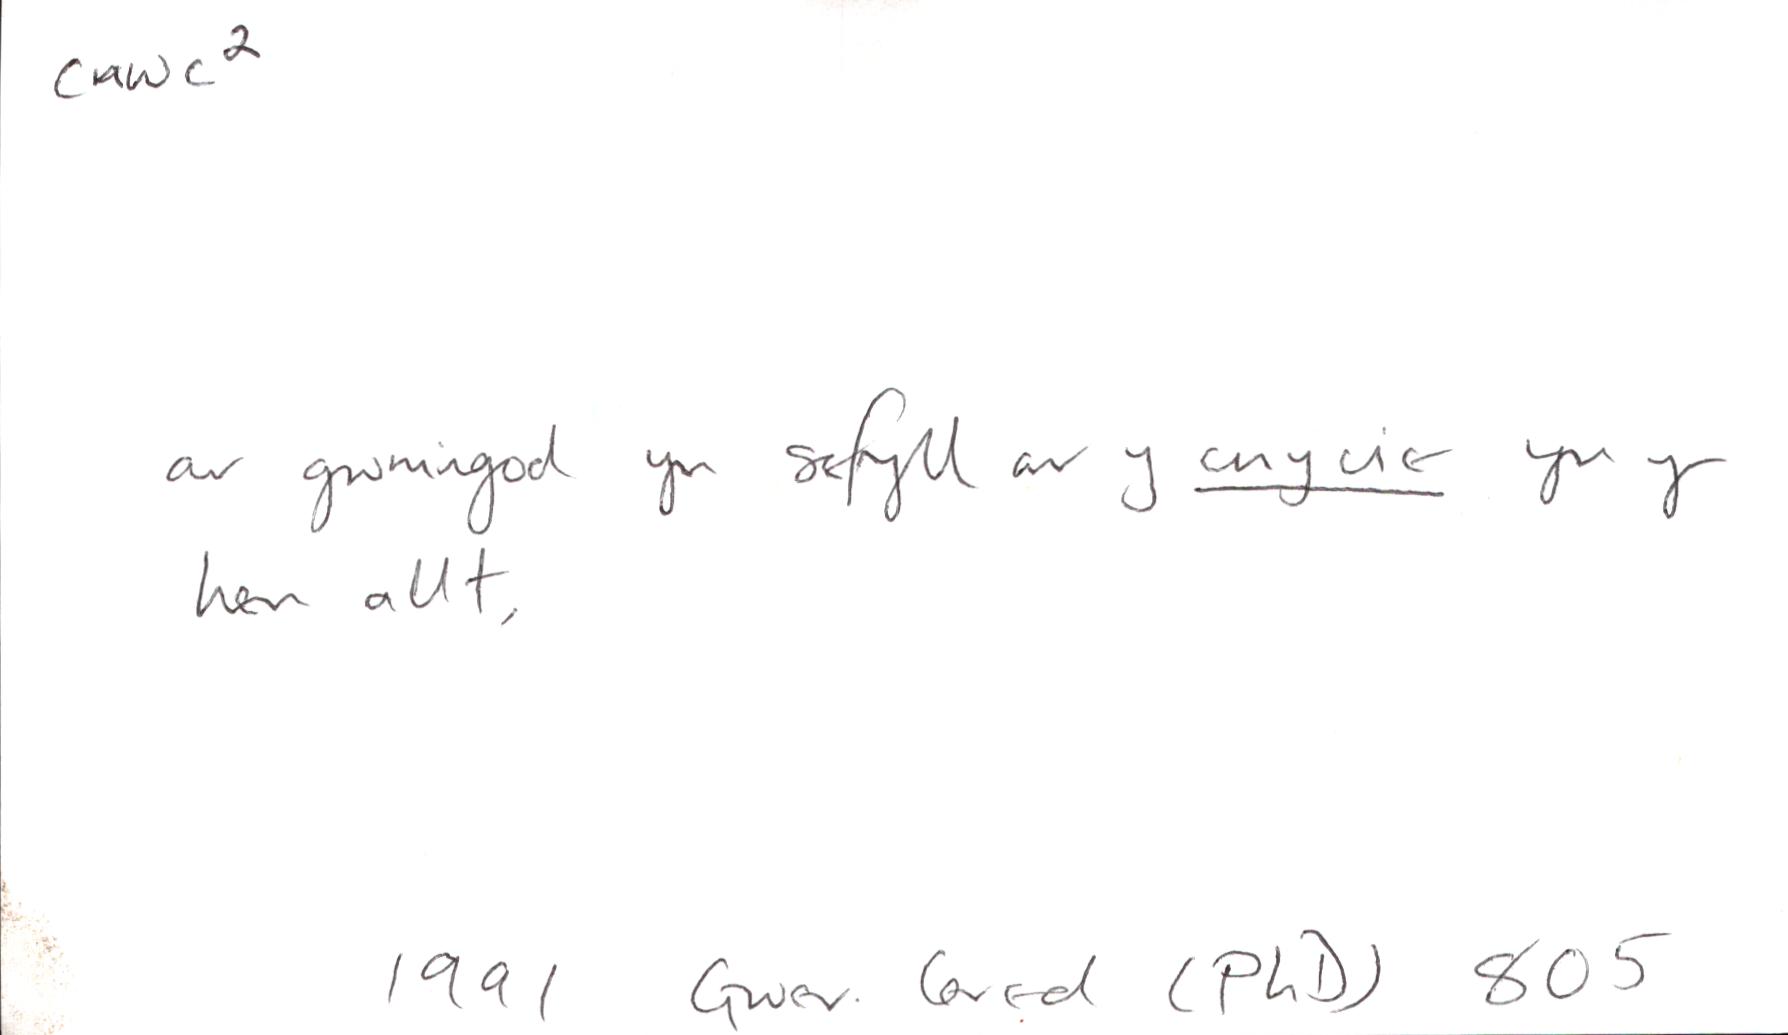 cnwc²
ar gwningod yn sefyll ar y cnycie yn yr
hen allt,
1991 Gwer. Cered (PhD) 805